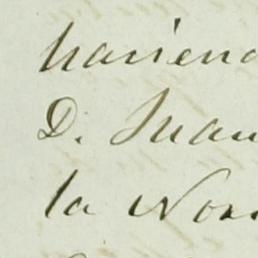 hacienda
D. Juan
la Nor